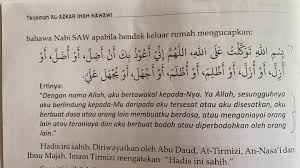 Terjemah AL-AZKAR IMAM NAWAWI
bahawa Nabi SAW apabila hendak keluar rumah mengucapkan;
بِسْمِ اللهِ تَوَكَّلْتُ عَلَى اللهِ، اللَّهُمَّ إِنِّي أَعُوذُ بِكَ أَنْ أَضِلَّ، أَوْ أُضَلَّ،
أَوْ أَزِلَّ، أَوْ أُزَلَّ، أَوْ أَظْلِمَ، أَوْ أُظْلَمَ، أَوْ أَجْهَلَ، أَوْ يُجْهَلَ عَلَيَّ.
Ertinya:
"Dengan nama Allah, aku bertawakal kepada-Nya. Ya Allah, sesungguhnya
aku berlindung kepada-Mu daripada aku tersesat atau aku disesatkan, aku
berbuat dosa atau orang lain membuatku berdosa, atau menganiayai orang
lain atau teraniaya dan aku berbuat bodoh atau diperbodohkan oleh orang
lain."
Hadis ini sahih. Diriwayatkan oleh Abu Daud, At-Tirmizi, An-Nasa'i dan
Ibnu Majah. Imam Tirmizi mengatakan: "Hadis ini sahih."